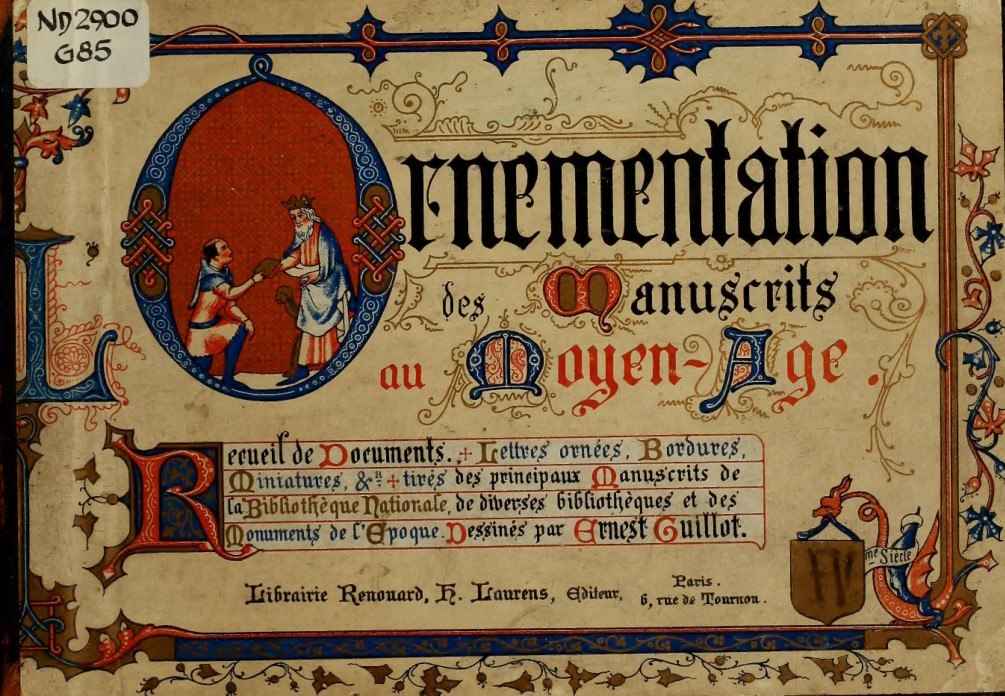 ND2900
G85
L'Ornementation
des Manuscrits
au Moyen-Age.
Recueil de Documents. + Lettres ornées, Bordures,
Miniatures, &a + tirés des principaux Manuscrits de
la Bibliothèque Nationale, de diverses bibliothèques et des
Monuments de l'Epoque. Dessinés par Ernest Guillot.
Librairie Renouard, H. Laurens, Editeur, Paris.
6, rue de Tournon.
XIVme Siècle